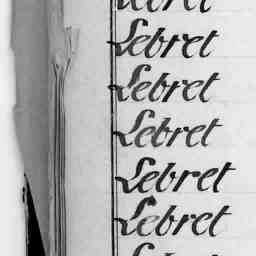 Lebret
Lebret
Lebret
Lebret
Lebret
Lebret
Lebret